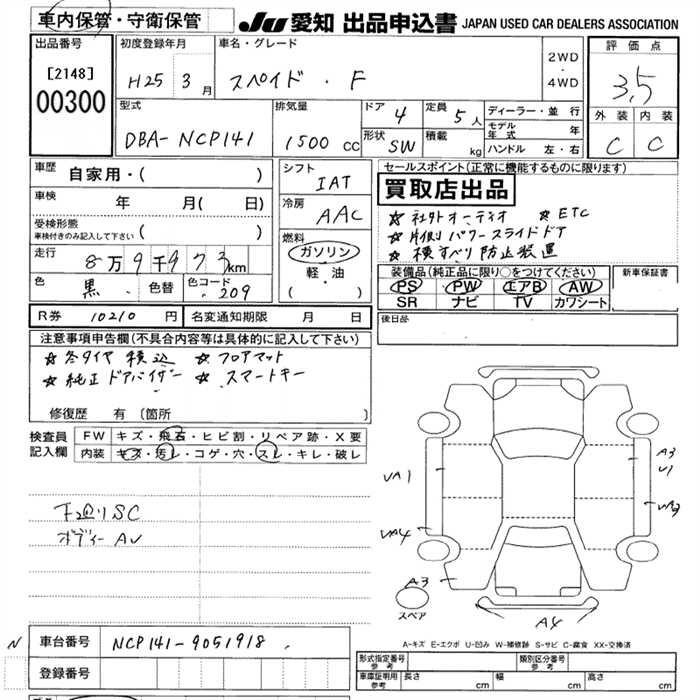 車内保管・守衛保管
JU 愛知 出品申込書 JAPAN USED CAR DEALERS ASSOCIATION
出品番号 [2148] 00300
初度登録年月 H25 3月
車名・グレード スペイド・F
2WD・4WD
評価点 3.5
外装 C 内装 C
型式 DBA-NCP141
排気量 1500 cc
ドア 4 定員 5人
形状 SW 積載 kg
ディーラー・並行
モデル年式 年
ハンドル 左・右
車歴 自家用・( )
車検 年 月( 日)
受検形態 車検付きのみ記入して下さい ( )
走行 8万9千973km
色 黒 色替 色コード 209
シフト IAT
冷房 AAC
燃料 ガソリン・軽・油 ( )
セールスポイント(正常に機能するものに限ります)
買取店出品
☆ 社外オーデオ ☆ ETC
☆ 片側パワースライドドア
☆ 横すべり防止装置
装備品(純正品に限り○をつけてください)
PS PW エアB AW
SR ナビ TV カワシート
新車保証書
後日品
R券 10210 円 名変通知期限 月 日
注意事項申告欄(不具合内容等は具体的に記入して下さい)
☆ 冬タイヤ積込 ☆ フロアマット
☆ 純正ドアバイザー ☆ スマートキー
修復歴 有〔箇所 〕
検査員記入欄
FW キズ・飛石・ヒビ割・リペア跡・X要
内装 キズ・汚レ・コゲ・穴・スレ・キレ・破レ
下廻りSC
ボディーAU
UA1
UA4
A3
U1
A3
A8
スペア
A-キズ E-エクボ U-凹み W-補修跡 S-サビ C-腐食 XX-交換済
N 車台番号 NCP141-9051918
登録番号
形式指定番号 参考 類別区分番号 参考
車庫証明用 参考 長さ cm 幅 cm 高さ cm